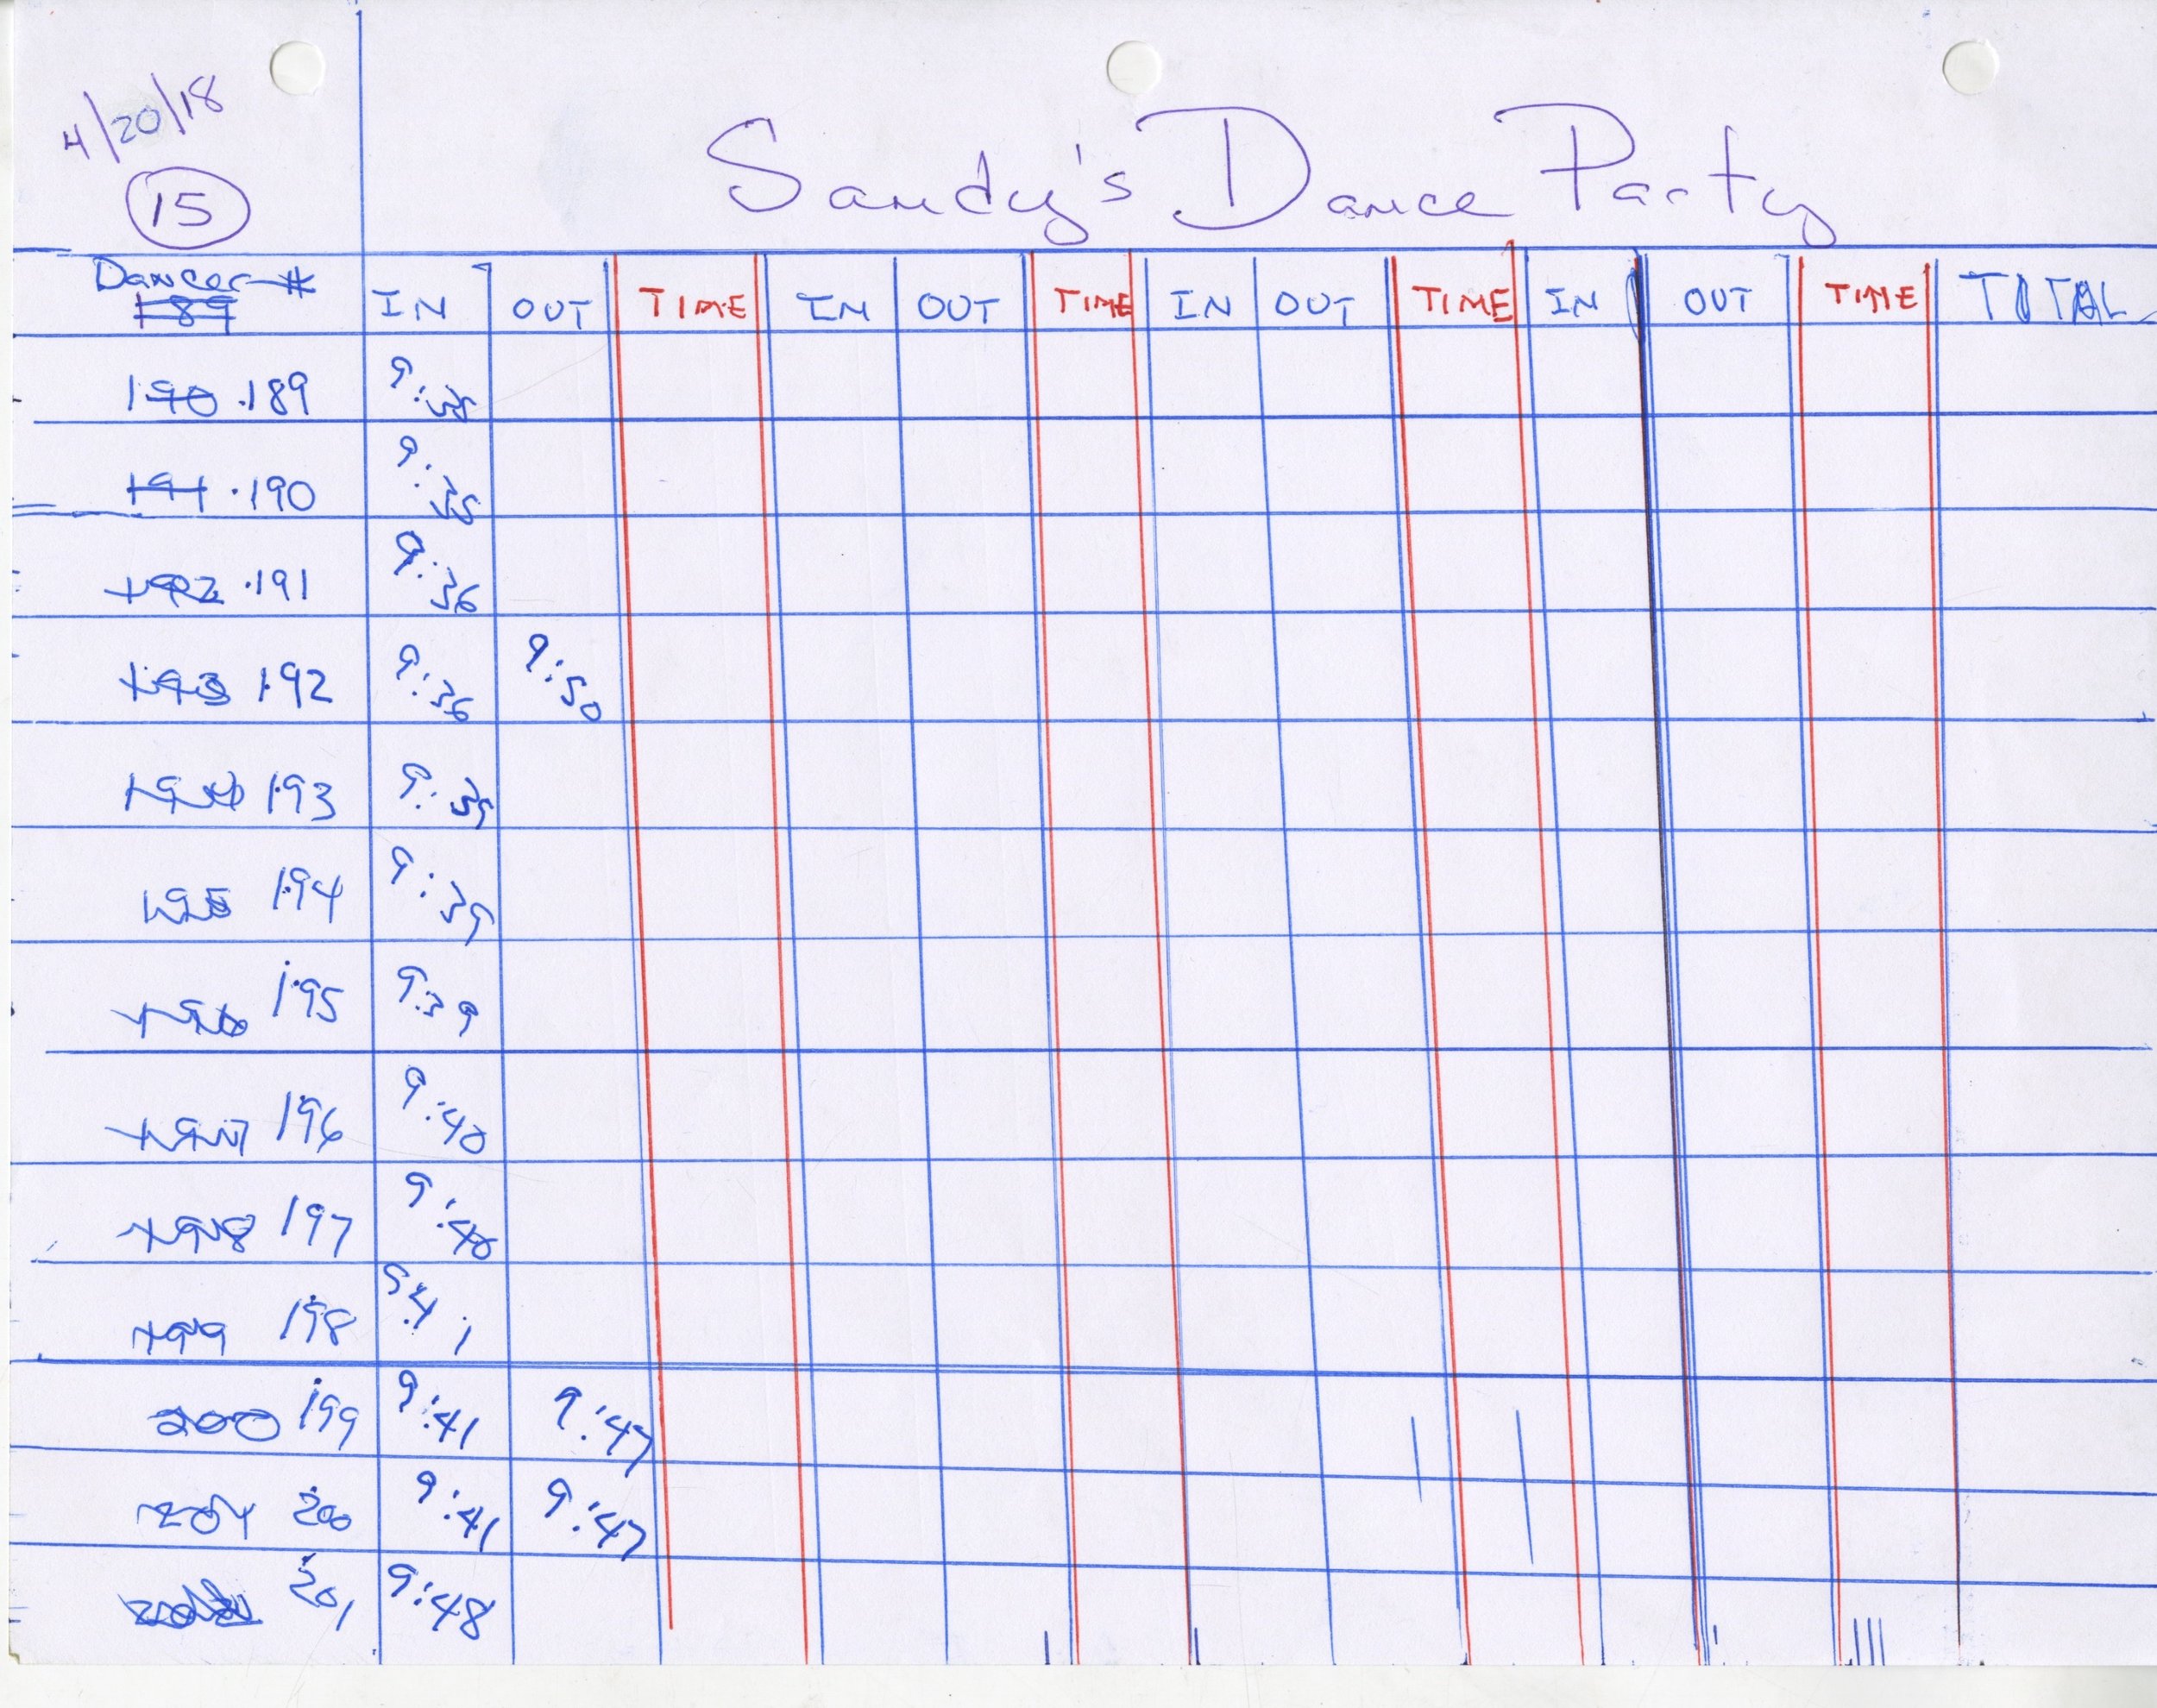 4/20/18
15
Sandy's Dance Party
Dancer #
189
IN OUT TIME IN OUT TIME IN OUT TIME IN OUT TIME TOTAL
190 .189 9:35
191 .190 9:35
192 .191 9:36
193 192 9:36 9:50
194 193 9:39
195 194 9:39
196 195 9:39
197 196 9:40
198 197 9:40
199 198 9:41
200 199 9:41 9:47
201 200 9:41 9:47
201 9:48